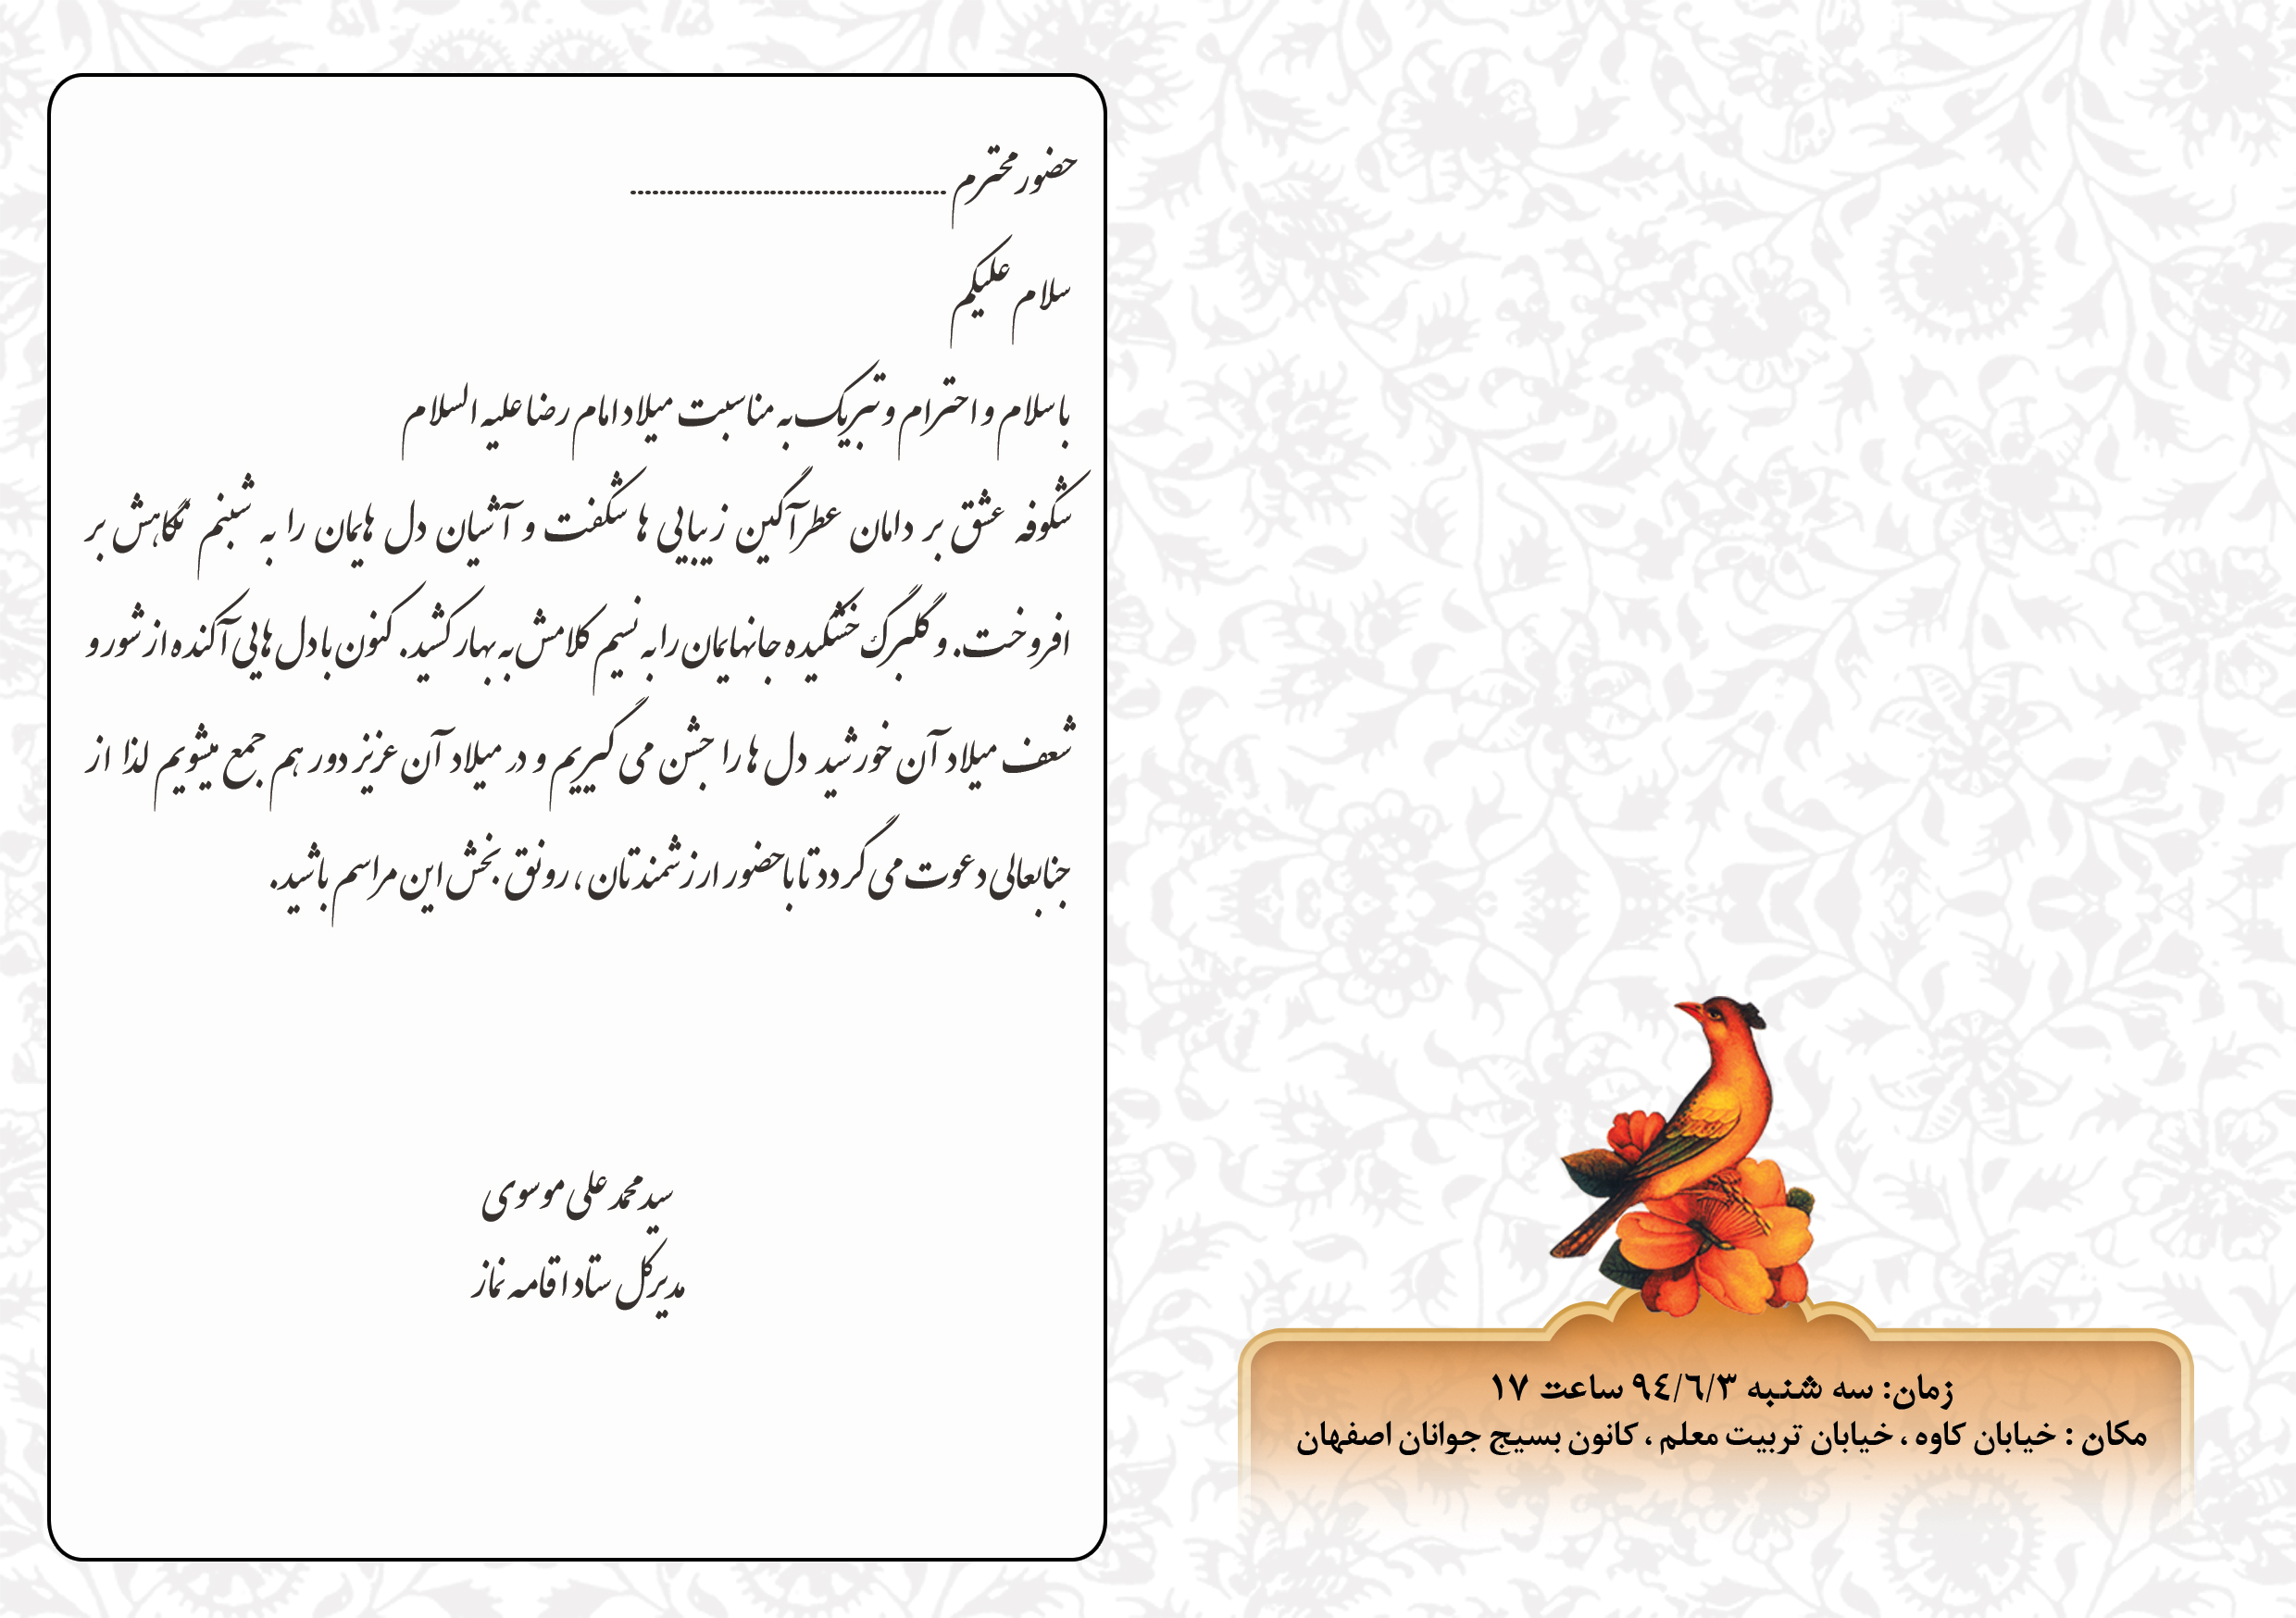 حضور محترم ............................................
سلام علیکم
با سلام و احترام و تبریک به مناسبت میلاد امام رضا علیه السلام
شکوفه عشق بر دامان عطرآگین زیبایی ها شکفت و آشیان دل هایمان را به شبنم نگاهش بر
افروخت. و گلبرگ خشکیده جانهایمان را به نسیم کلامش به بهار کشید. کنون با دل هایی آکنده از شور و
شعف میلاد آن خورشید دل ها را جشن می گیریم و در میلاد آن عزیز دور هم جمع میشویم لذا از
جنابعالی دعوت می گردد تا با حضور ارزشمندتان ، رونق بخش این مراسم باشید.
سید محمد علی موسوی
مدیرکل ستاد اقامه نماز
زمان: سه شنبه ۹٤/٦/۳ ساعت ۱۷
مکان : خیابان کاوه ، خیابان تربیت معلم ، کانون بسیج جوانان اصفهان